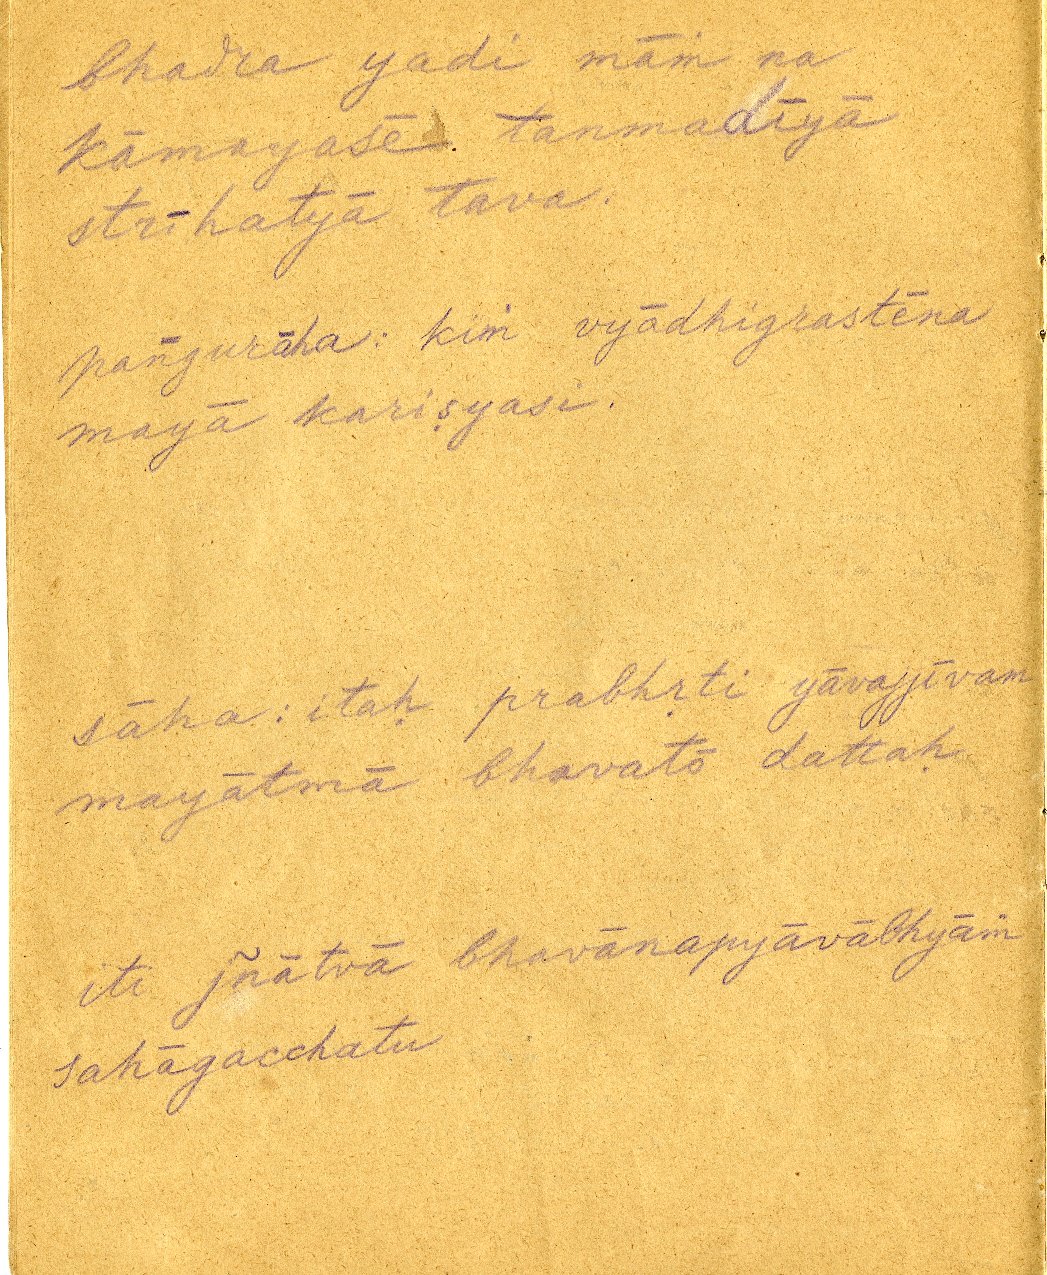 bhadra yadi māṁ na
kāmayasē. tanmadīyā
strīhatyā tava.
pan̄gurāha: kiṁ vyādhigrastēna
mayā kariṣyasi.
sāha: itaḥ prabhṛti yāvajjīvam
mayātmā bhavatō dattaḥ
iti jñātvā bhavānapyāvābhyāṁ
sahāgacchatu